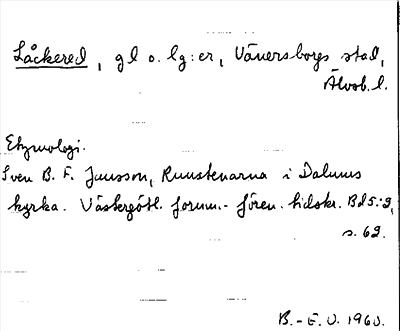 Låckered, gl o. lg:er, Vänersborgs stad,
Älvsb. l.
Etymologi.
Sven B. F. Jansson, Runstenarna i Dalums
kyrka. Västergötl. fornm.- fören. tidskr. Bd 5:2,
s. 62.
B.-E. O. 1960.